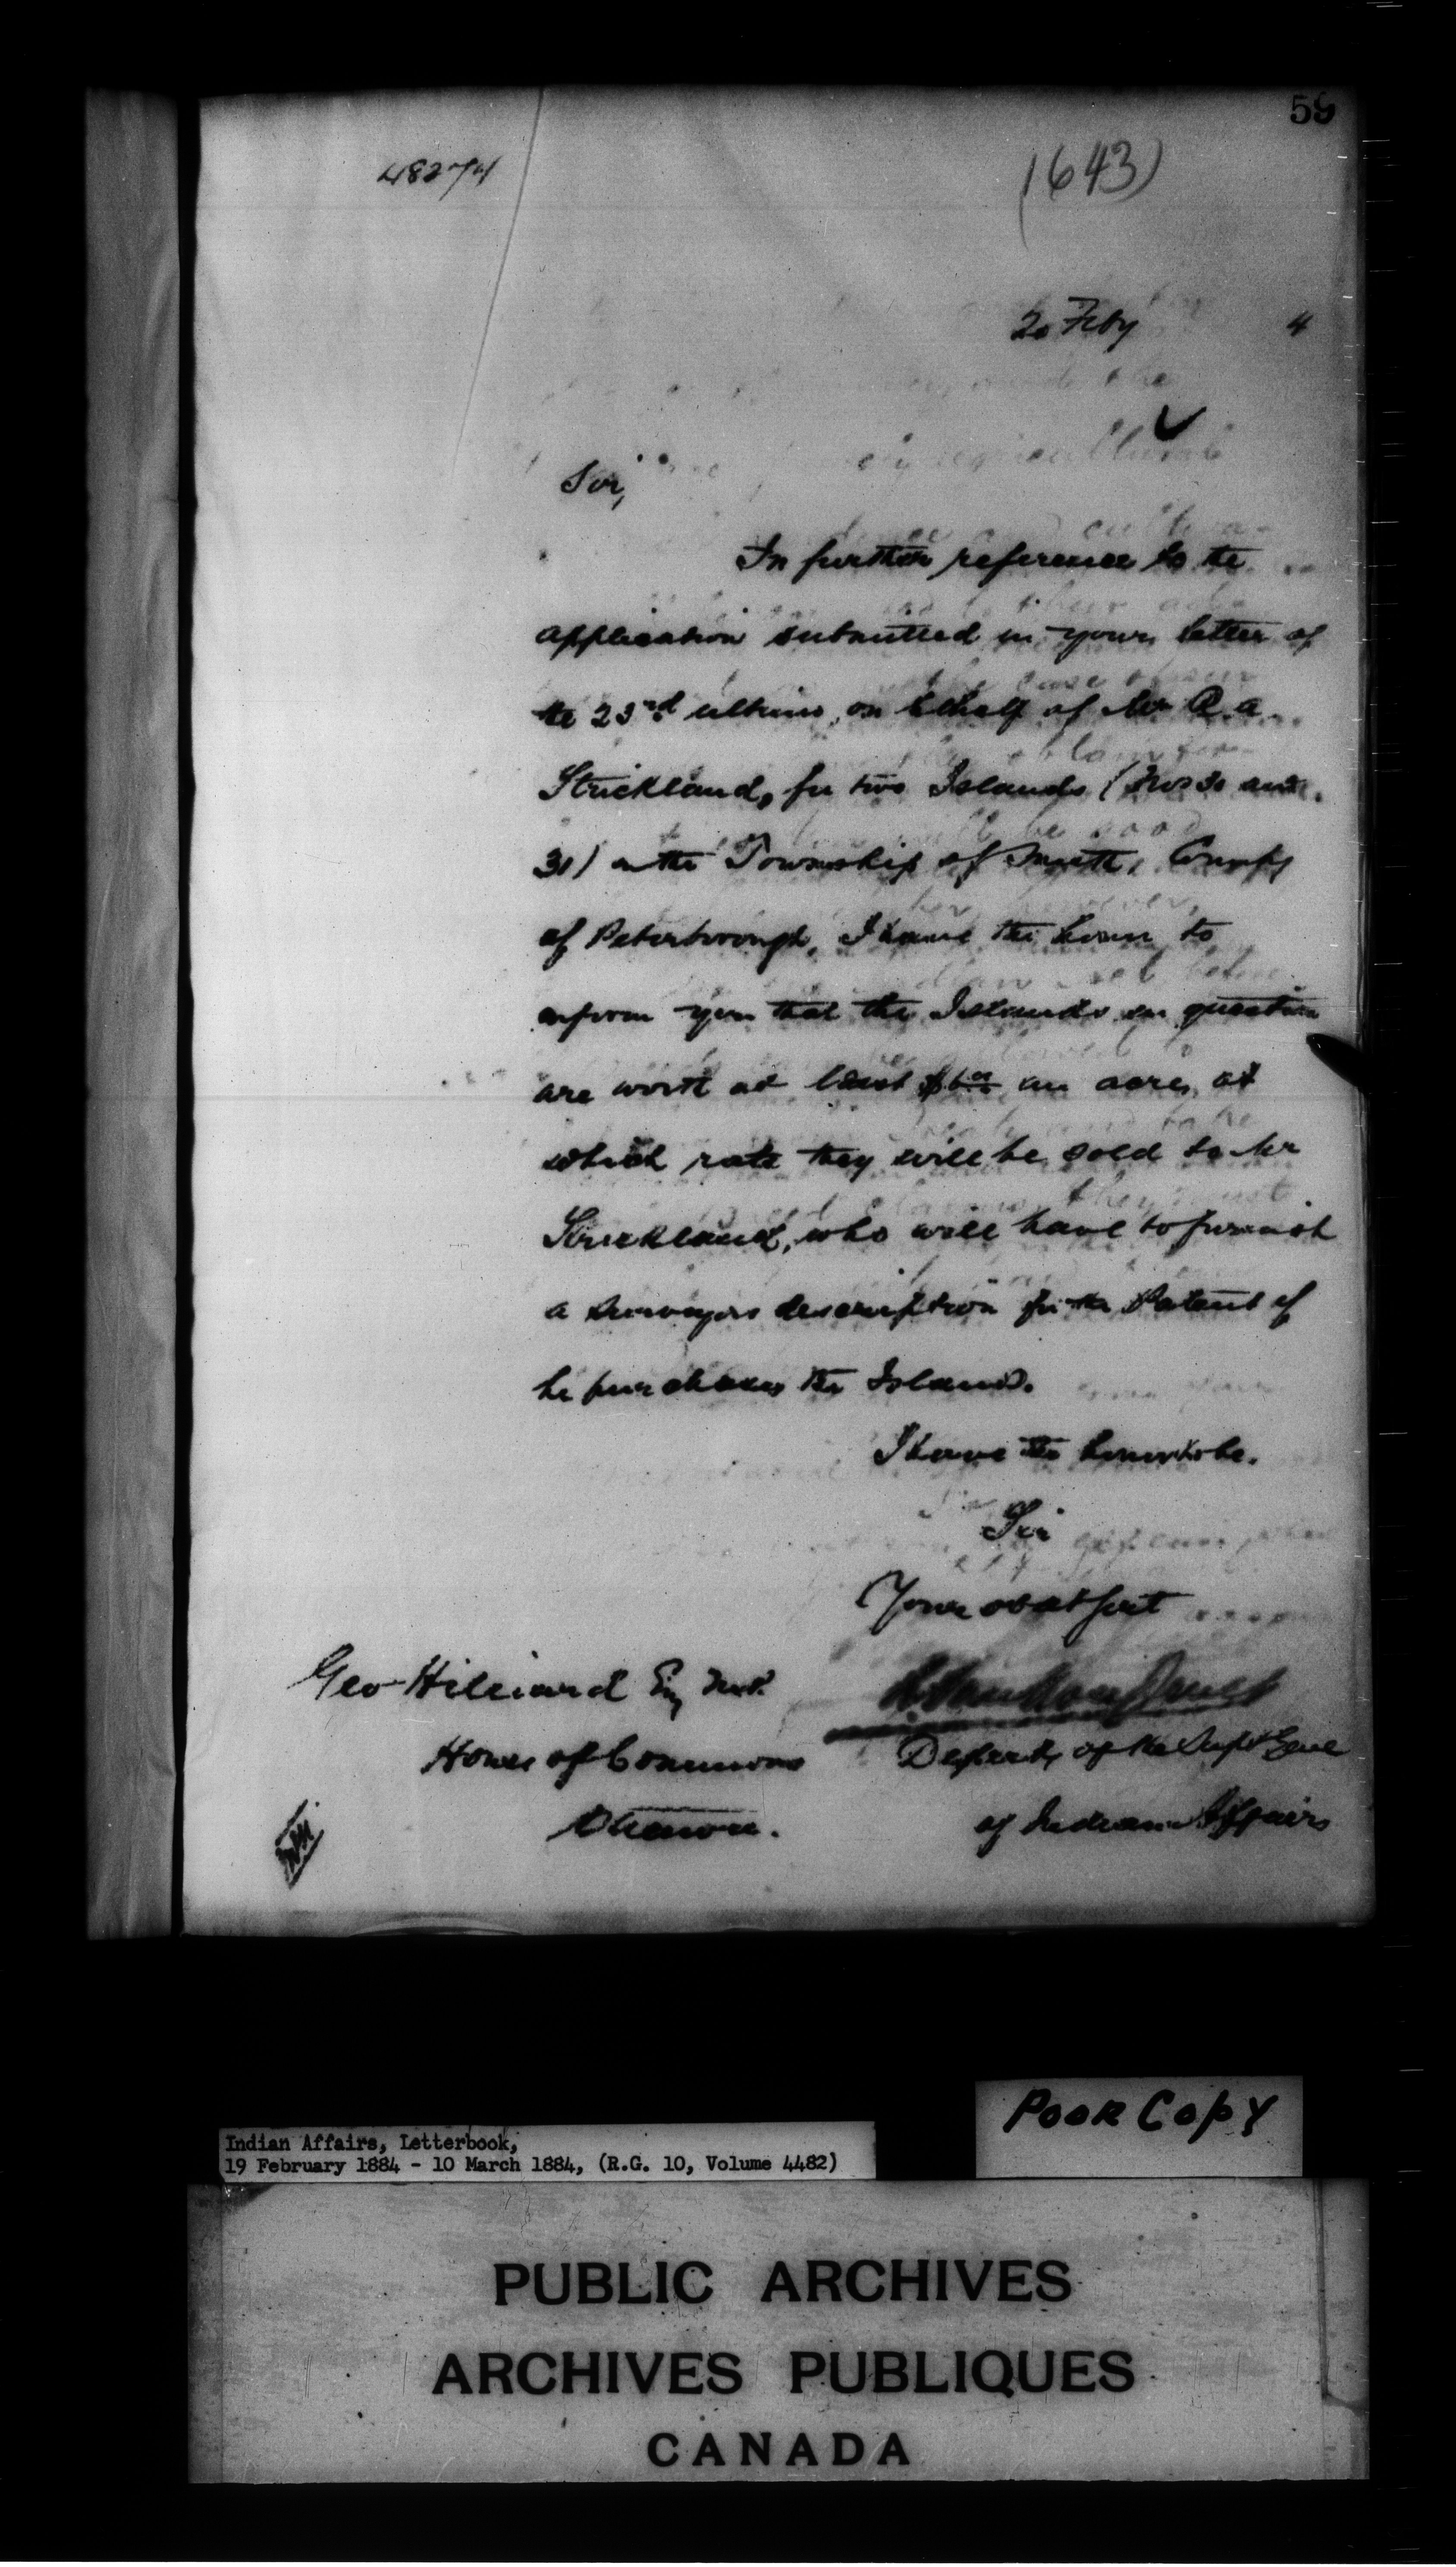 59
48274
(643)
20 Feby 4
Sir,
In further reference to the
application submitted in your letter of
the 23rd ultimo, on behalf of Mr R. A.
Strickland, for two Islands (Nos 30 and
31) in the Township of Smith, County
of Peterborough, I have the honor to
inform you that the Islands in question
are worth at least $6.00 an acre, at
which rate they will be sold to Mr
Strickland, who will have to furnish
a Surveyors description for the Patent if
he purchases the Islands.
I have the honor to be.
Sir
Your obedt Servt
Geo Hilliard Esq M.P.
L. VanKoughnet
House of Commons
Deputy of the Supt Genl
Ottawa.
of Indian Affairs
Poor Copy
Indian Affairs, Letterbook,
19 February 1884 - 10 March 1884, (R.G. 10, Volume 4482)
PUBLIC ARCHIVES
ARCHIVES PUBLIQUES
CANADA